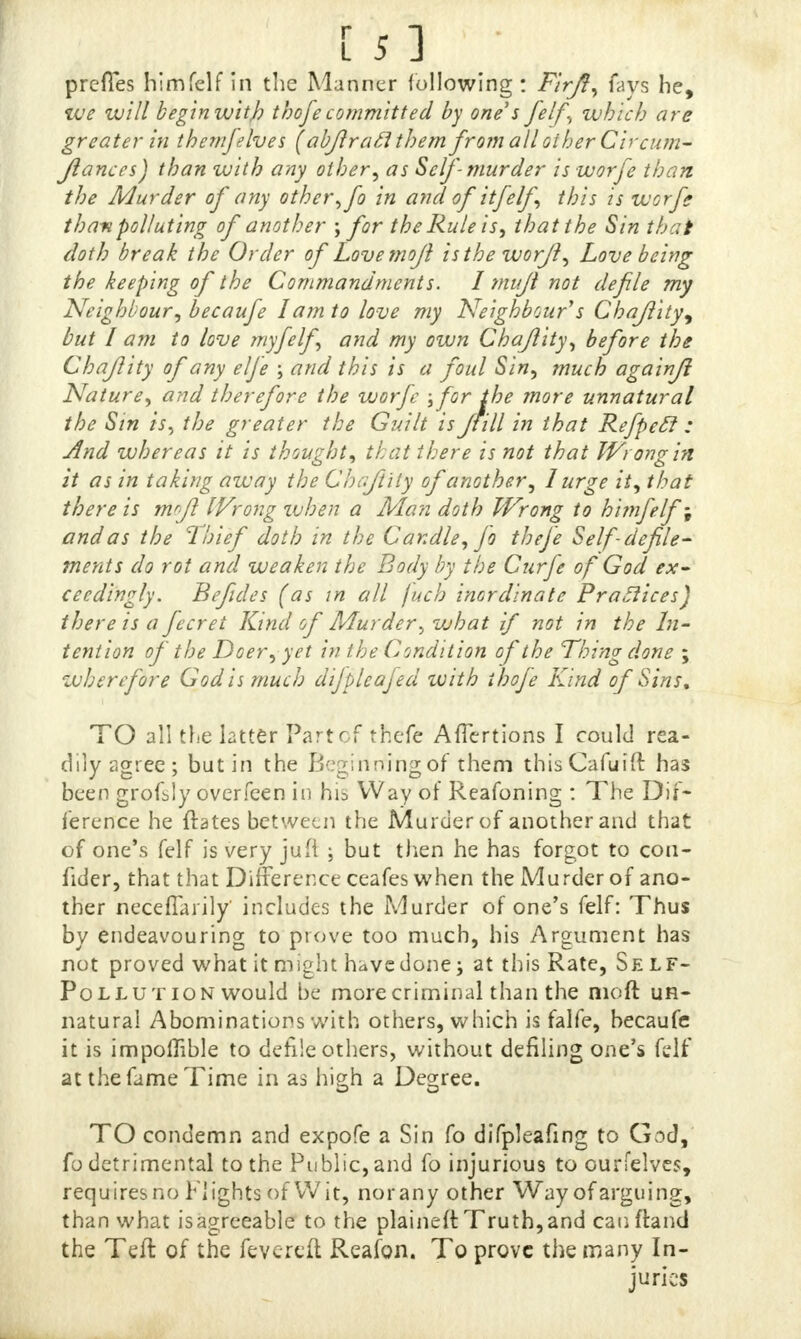 [ 5 ]
preſſes himſelf in the Manner following: Firſt, ſays he,
we will begin with thoſe committed by one's ſelf, which are
greater in themſelves (abſtract them from all other Circum-
ſtances) than with any other, as Self-murder is worſe than
the Murder of any other, ſo in and of itſelf, this is worſe
than polluting of another ; for the Rule is, that the Sin that
doth break the Order of Love moſt is the worſt, Love being
the keeping of the Commandments. I muſt not defile my
Neighbour, becauſe I am to love my Neighbour's Chaſtity,
but I am to love myſelf, and my own Chaſtity, before the
Chaſtity of any elſe ; and this is a foul Sin, much againſt
Nature, and therefore the worſe ; for the more unnatural
the Sin is, the greater the Guilt is ſtill in that Reſpect :
And whereas it is thought, that there is not that Wrong in
it as in taking away the Chaſtity of another, I urge it, that
there is moſt Wrong when a Man doth Wrong to himſelf ;
and as the Thief doth in the Candle, ſo theſe Self-defile-
ments do rot and weaken the Body by the Curſe of God ex-
ceedingly. Beſides (as in all ſuch inordinate Practices)
there is a ſecret Kind of Murder, what if not in the In-
tention of the Doer, yet in the Condition of the Thing done ;
wherefore God is much diſpleaſed with thoſe Kind of Sins.
TO all the latter Part of theſe Aſſertions I could rea-
dily agree ; but in the Beginning of them this Caſuiſt has
been groſsly overſeen in his Way of Reaſoning : The Dif-
ference he ſtates between the Murder of another and that
of one's ſelf is very juſt ; but then he has forgot to con-
ſider, that that Difference ceaſes when the Murder of ano-
ther neceſſarily includes the Murder of one's ſelf: Thus
by endeavouring to prove too much, his Argument has
not proved what it might have done ; at this Rate, SELF-
POLLUTION would be more criminal than the moſt un-
natural Abominations with others, which is falſe, becauſe
it is impoſſible to defile others, without defiling one's ſelf
at the ſame Time in as high a Degree.
TO condemn and expoſe a Sin ſo diſpleaſing to God,
ſo detrimental to the Public, and ſo injurious to ourſelves,
requires no Flights of Wit, nor any other Way of arguing,
than what is agreeable to the plaineſt Truth, and can ſtand
the Teſt of the ſevereſt Reaſon. To prove the many In-
juries